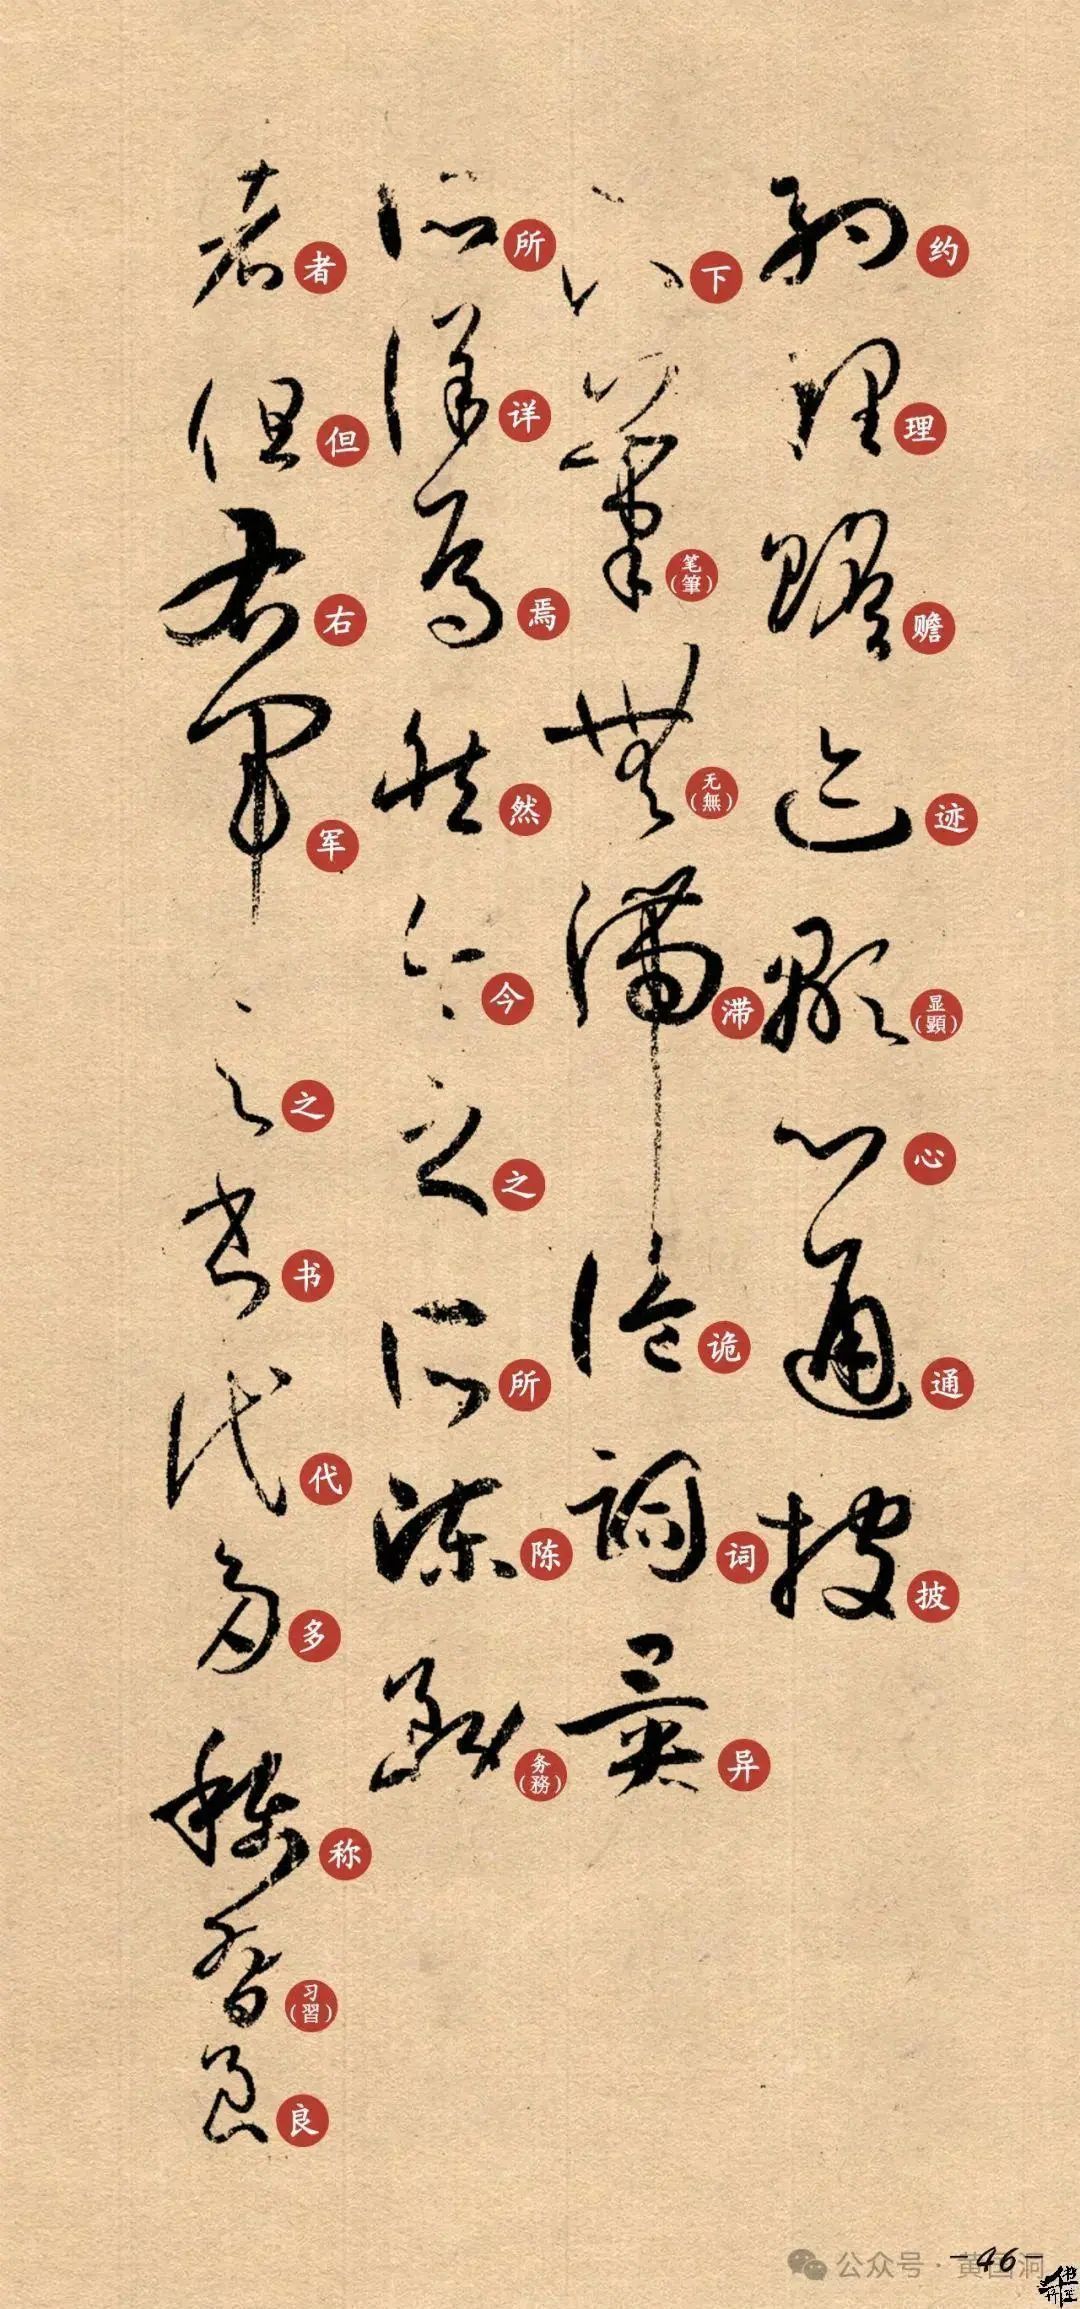 约理赡迹显(顯)心通披
下笔(筆)无(無)滞诡词异
所详焉然今之所陈务(務)
者但右军之书代多称习(習)良
公众号·黄国洞
-46-